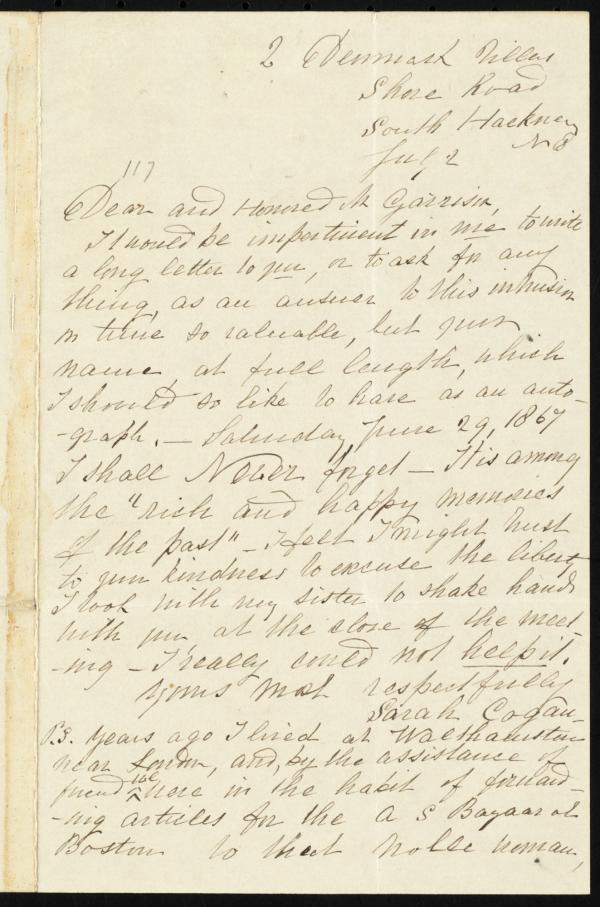 2 Denmark Villas
Shore Road
South Hackney
N E
July 2
117
Dear and Honored Mr Garrison,
It would be impertinent in me to write
a long letter to you, or to ask for any
thing, as an answer to this intrusion
on time so valuable, but your
name at full length, which
I should so like to have as an auto-
-graph. — Saturday, June 29, 1867
I shall Never forget — It is among
the "rich and happy memories
of the past" — I felt I might trust
to your kindness to excuse the liberty
I took with my sister to shake hands
with you at the close of the meet-
-ing — I really could not help it.
Yours most respectfully
Sarah Cogan
P.S. Years ago I lived at Walthamstow
near London, and, by the assistance of
friends we were in the habit of forward-
-ing articles for the A S Bazaar at
Boston to that noble woman,